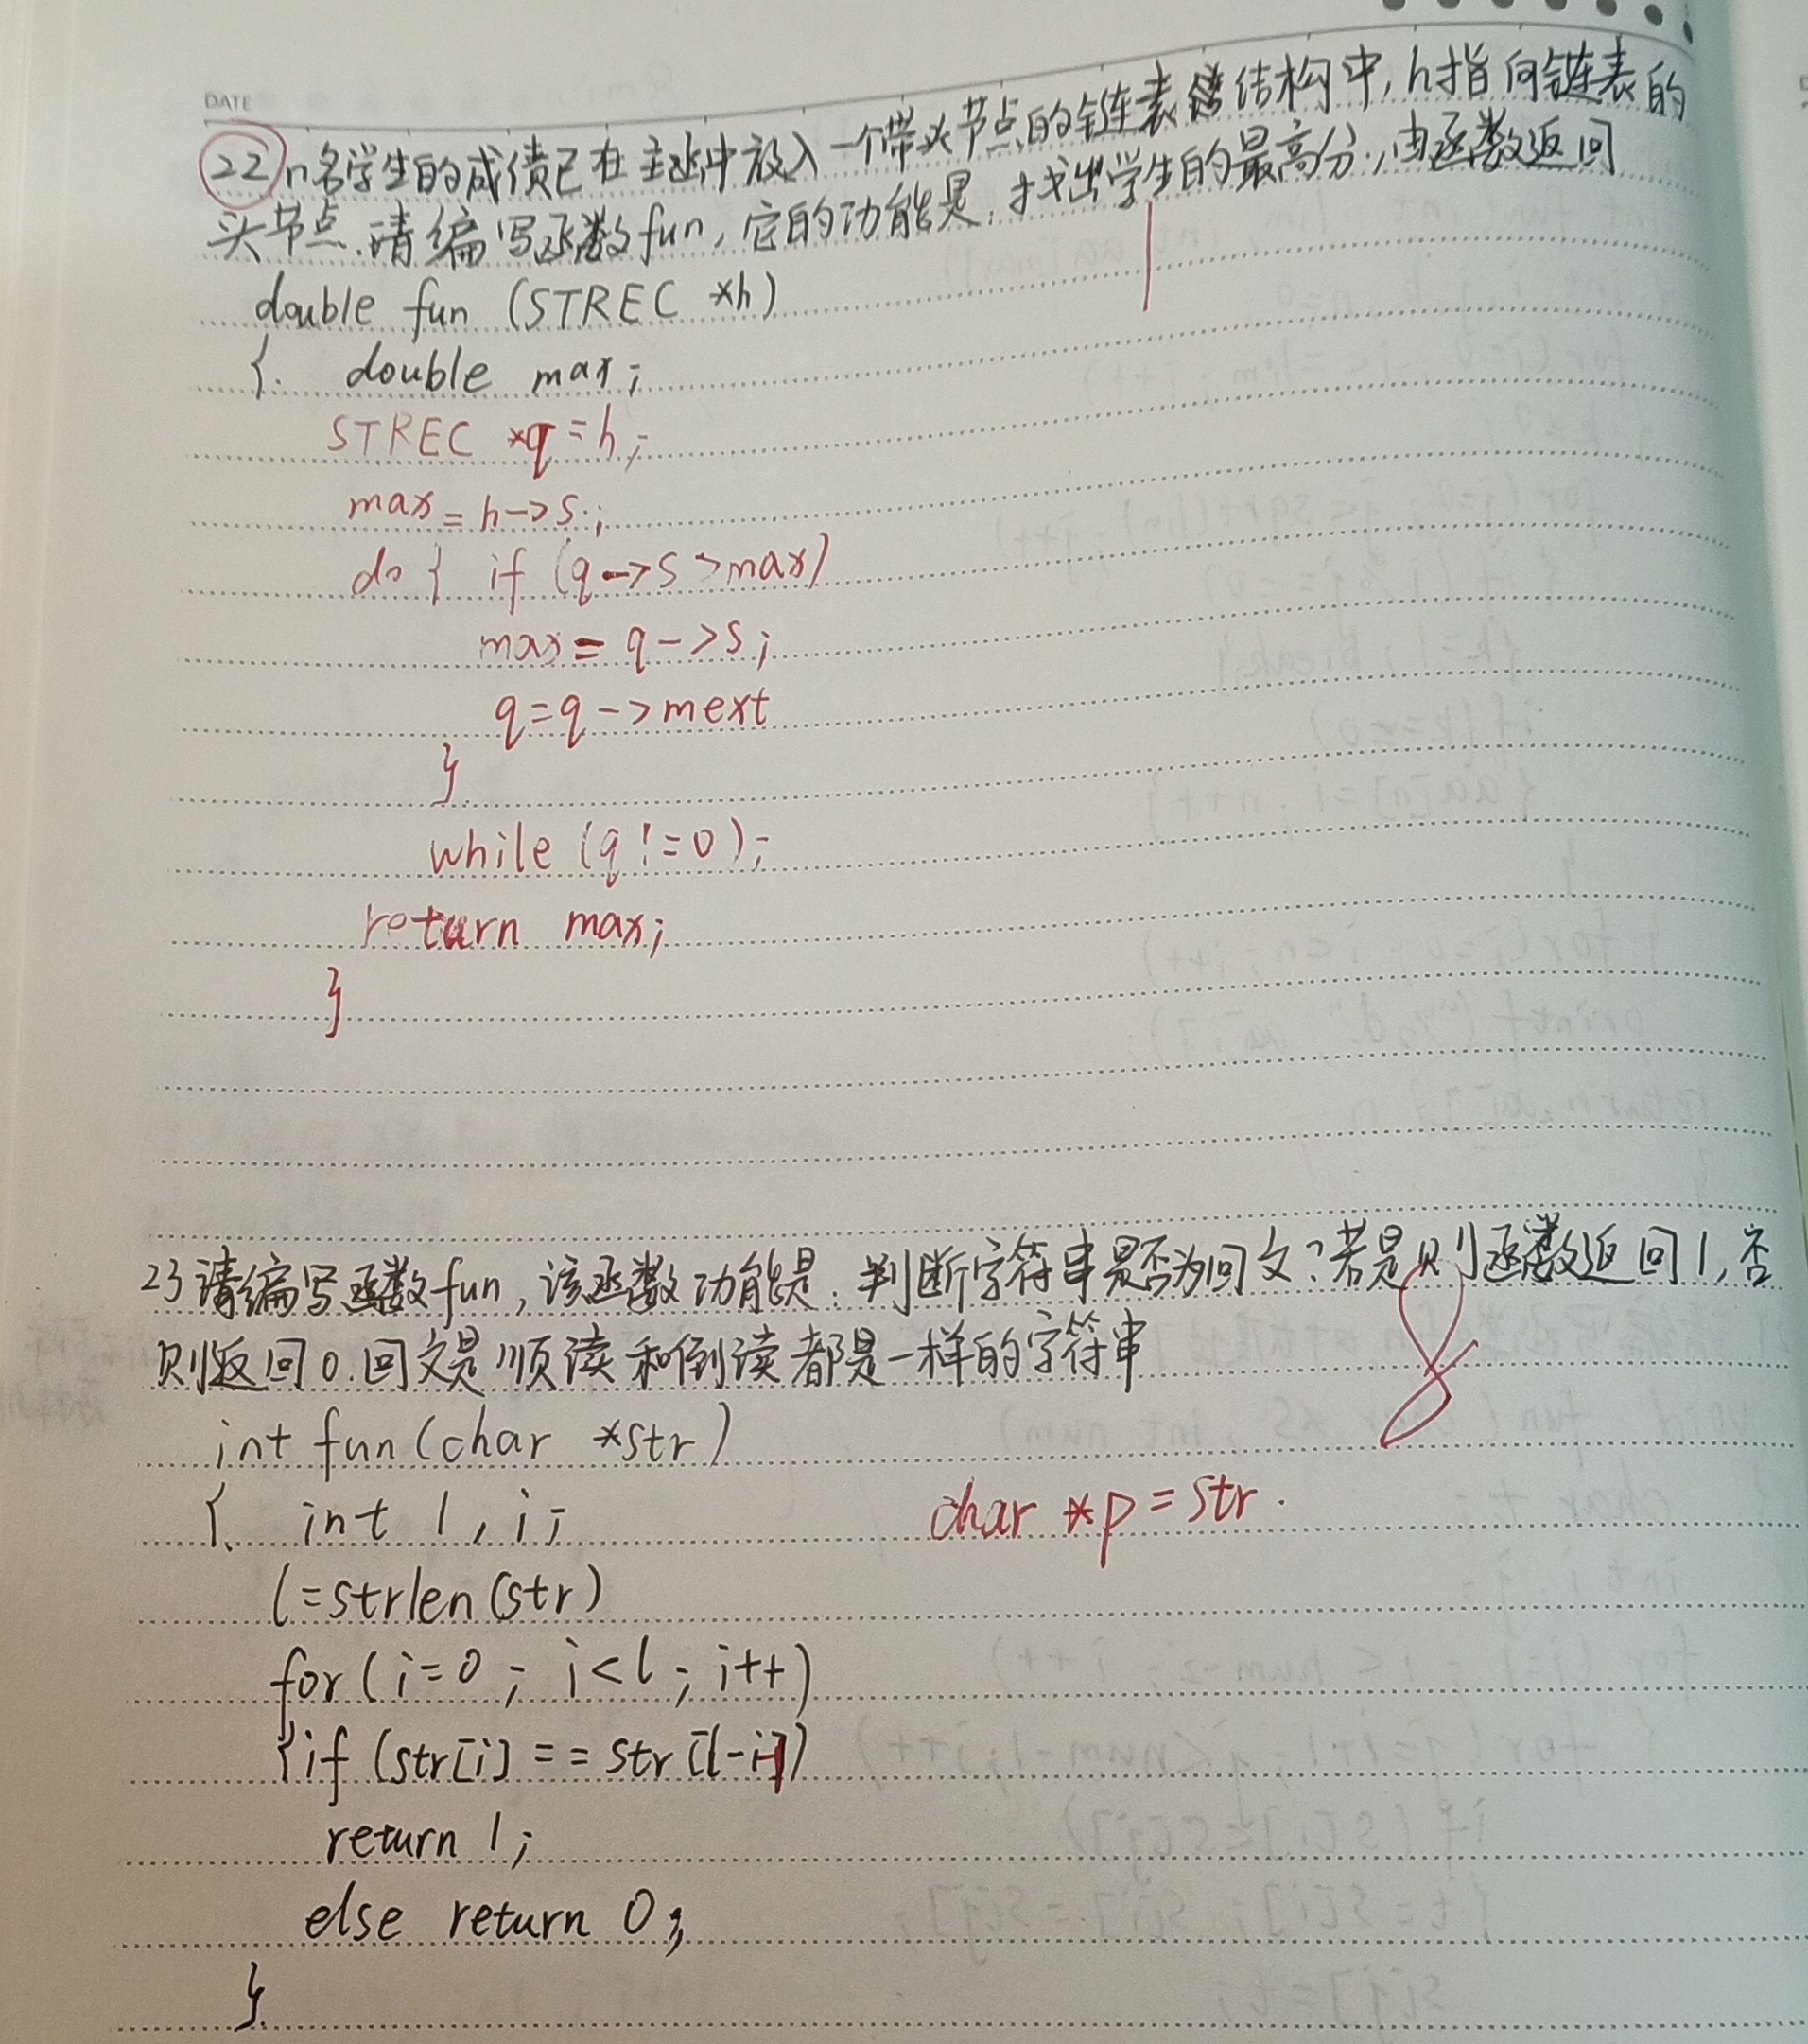 DATE
22 n名学生的成绩已在主函中放入一个带头节点的链表结构中, h指向链表的
头节点.请编写函数fun, 它的功能是: 找出学生的最高分, 由函数返回
double fun (STREC *h)
{ double max;
STREC *q = h;
max = h->s;
do { if (q->s >max)
max = q->s;
q=q->next
}
while (q!=0);
return max;
}
23请编写函数fun, 该函数功能是: 判断字符串是否为回文?若是则函数返回1, 否
则返回0.回文是顺读和倒读都是一样的字符串
int fun(char *str)
{ int l, i;
char *p = str.
l=strlen(str)
for(i=0; i<l; i++)
{if (str[i] == str[l-i])
return 1;
else return 0;
}